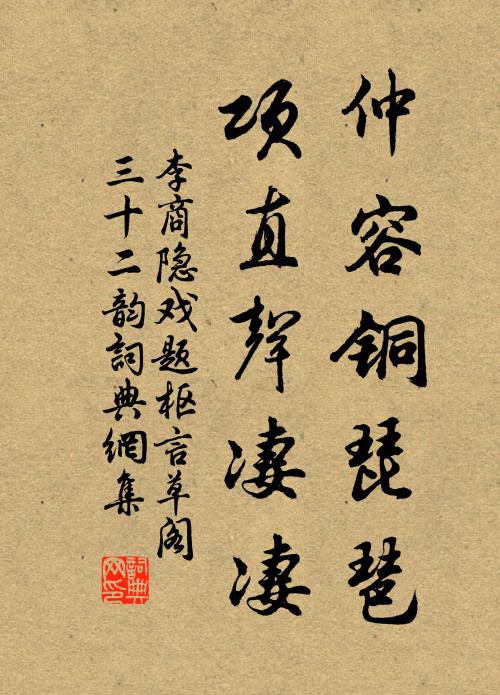 仲容铜琵琶
项直聲凄凄
李商隐戏题枢言草阁
三十二韵詞典網集
詞典
网印